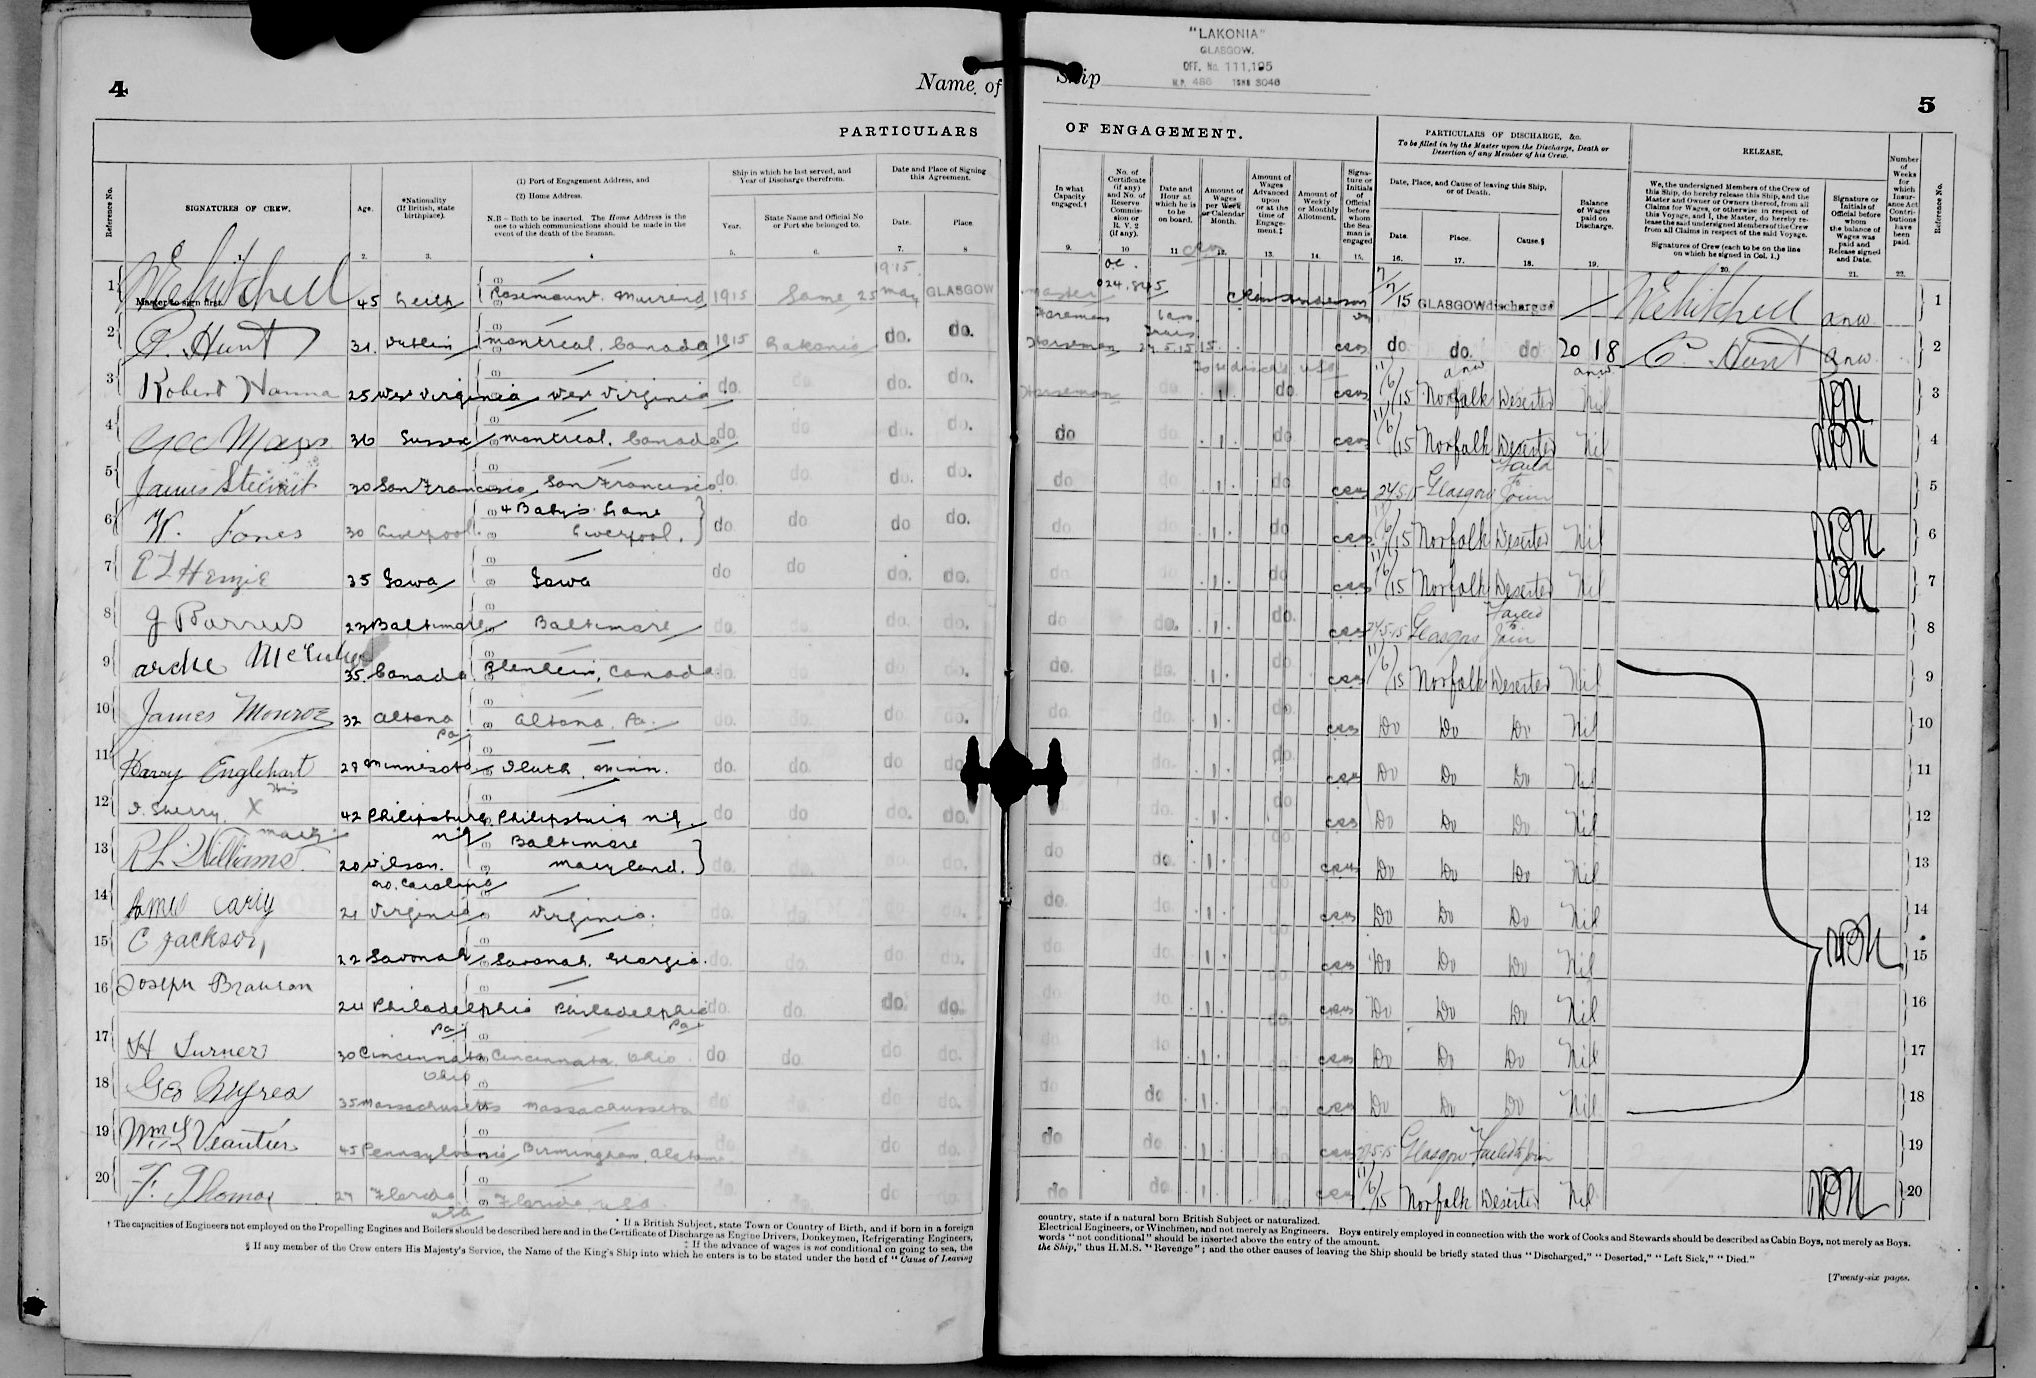 4
Name of
Ship
"LAKONIA"
GLASGOW.
OFF. No. 111,195
5
PARTICULARS
OF ENGAGEMENT.
PARTICULARS OF DISCHARGE, &c.
To be filled in by the Master upon the Discharge, Death or
Desertion of any Member of his Crew.
RELEASE.
Reference No.
SIGNATURES OF CREW.
Age.
*Nationality
(If British, state
birthplace).
(1) Port of Engagement Address, and
(2) Home Address.
N.B – Both to be inserted. The Home Address is the
one to which communications should be made in the
event of the death of the Seaman.
Ship in which he last served, and
Year of Discharge therefrom.
Year.
State Name and Official No
or Port she belonged to.
Date and Place of Signing
this Agreement.
Date.
Place
In what
Capacity
engaged.†
No. of
Certificate
(if any)
and No. of
Reserve
Commis-
sion or
R. V. 2
(if any).
Date and
Hour at
which he is
to be
on board.
Amount of
Wages
per Week
or Calendar
Month.
Amount of
Wages
Advanced
upon
or at the
time of
Engage-
ment.‡
Amount of
Weekly
or Monthly
Allotment.
Signa-
ture or
Initials
of
Official
before
whom
the Sea-
man is
engaged
Date, Place, and Cause of leaving this Ship,
or of Death.
Date.
Place.
Cause.§
Balance
of Wages
paid on
Discharge.
We, the undersigned Members of the Crew of
this Ship, do hereby release this Ship, and the
Master and Owner or Owners thereof, from all
Claims for Wages, or otherwise in respect of
this Voyage, and I, the Master, do hereby re-
lease the said undersigned Members of the Crew
from all Claims in respect of the said Voyage.
Signatures of Crew (each to be on the line
on which he signed in Col. 1.)
Signature or
Initials of
Official before
whom
the balance of
Wages was
paid and
Release signed
and Date.
Number
of
Weeks
for
which
Insur-
ance Act
Contri-
butions
have
been
paid.
Reference No.
1 Master to sign first. 45 Leith Rosemount, Muirend 1915 Same 25 May 1915 GLASGOW Master 024.845 7/7/15 GLASGOW discharged 1
2 C. Hunt 31 Dublin Montreal. Canada 1915 Lakonia do. do. Horseman do do. do 20 18 C. Hunt 2
3 Robert Hanna 25 West Virginia West Virginia do. do. do. do. Horseman do 11/6/15 Norfolk Deserted Nil 3
4 36 Sussex Montreal. Canada do. do. do. do. do do 1 do 11/6/15 Norfolk Deserted Nil 4
5 James 30 San Francisco San Francisco. do. do. do. do. do do. 1 do Glasgow Failed to Join 5
6 W. Jones 30 Liverpool. 4 Lane Liverpool. do do do do. do do. 1 do 11/6/15 Norfolk Deserted Nil 6
7 35 Iowa Iowa do do do. do. do do. 1 do 11/6/15 Norfolk Deserted Nil 7
8 23 Baltimore Baltimore do. do. do. do. do do. 1 do. Glasgow Failed to Join 8
9 35. Canada Canada do. do. do. do. do. do. 1 do. 11/6/15 Norfolk Deserted Nil 9
10 James Monroe 32 Altona Pa Altona. Pa. do. do. do do. do. do. 1 do. Do Do Do Nil 10
11 Harry Englehart 29 Minnesota Minn. do. do. do. do do. 1 do. Do Do Do Nil 11
12 Sherry. His X mark 42 Philipsburg NJ Philipsburg NJ. do do do do. do. 1 do Do Do Do Nil 12
13 R L Williams 20 Wilson. no. Carolina Baltimore Maryland. do. do. do. do. do do. 1 Do Do Do Nil 13
14 James 21 Virginia Virginia. do. do. do do. do. do. 1 do Do Do Do Nil 14
15 C Jackson 22 Savonah Savonah. Georgia. do. do. do. do. do do. 1 do Do Do Do Nil 15
16 Joseph 24 Philadelphia Pa Philadelphia Pa do. do. do. do. do do. 1 do. Do Do Do Nil 16
17 H Turner 30 Cincinnati Ohio Cincinnati. Ohio. do do. do. do. do do 1 Do Do Do Nil 17
18 Geo 35 Massachusetts Massachusetts do do. do. do. do do 1 do Do Do Do Nil 18
19 Wm 45 Pennsylvania Birmingham. Alabama do do do. do do. 1 Glasgow Failed to Join 19
20 F. Thomas 27 Florida USA Florida USA. do do. do do. 1 do 11/6/15 Norfolk Deserted Nil 20
* If a British Subject, state Town or Country of Birth, and if born in a foreign
† The capacities of Engineers not employed on the Propelling Engines and Boilers should be described here and in the Certificate of Discharge as Engine Drivers, Donkeymen, Refrigerating Engineers,
‡ If the advance of wages is not conditional on going to sea, the
§ If any member of the Crew enters His Majesty's Service, the Name of the King's Ship into which he enters is to be stated under the head of "Cause of Leaving
country, state if a natural born British Subject or naturalized.
Electrical Engineers, or Winchmen, and not merely as Engineers. Boys entirely employed in connection with the work of Cooks and Stewards should be described as Cabin Boys, not merely as Boys.
words "not conditional" should be inserted above the entry of the amount.
the Ship," thus H.M.S. "Revenge"; and the other causes of leaving the Ship should be briefly stated thus "Discharged," "Deserted," "Left Sick," "Died."
[Twenty-six pages.